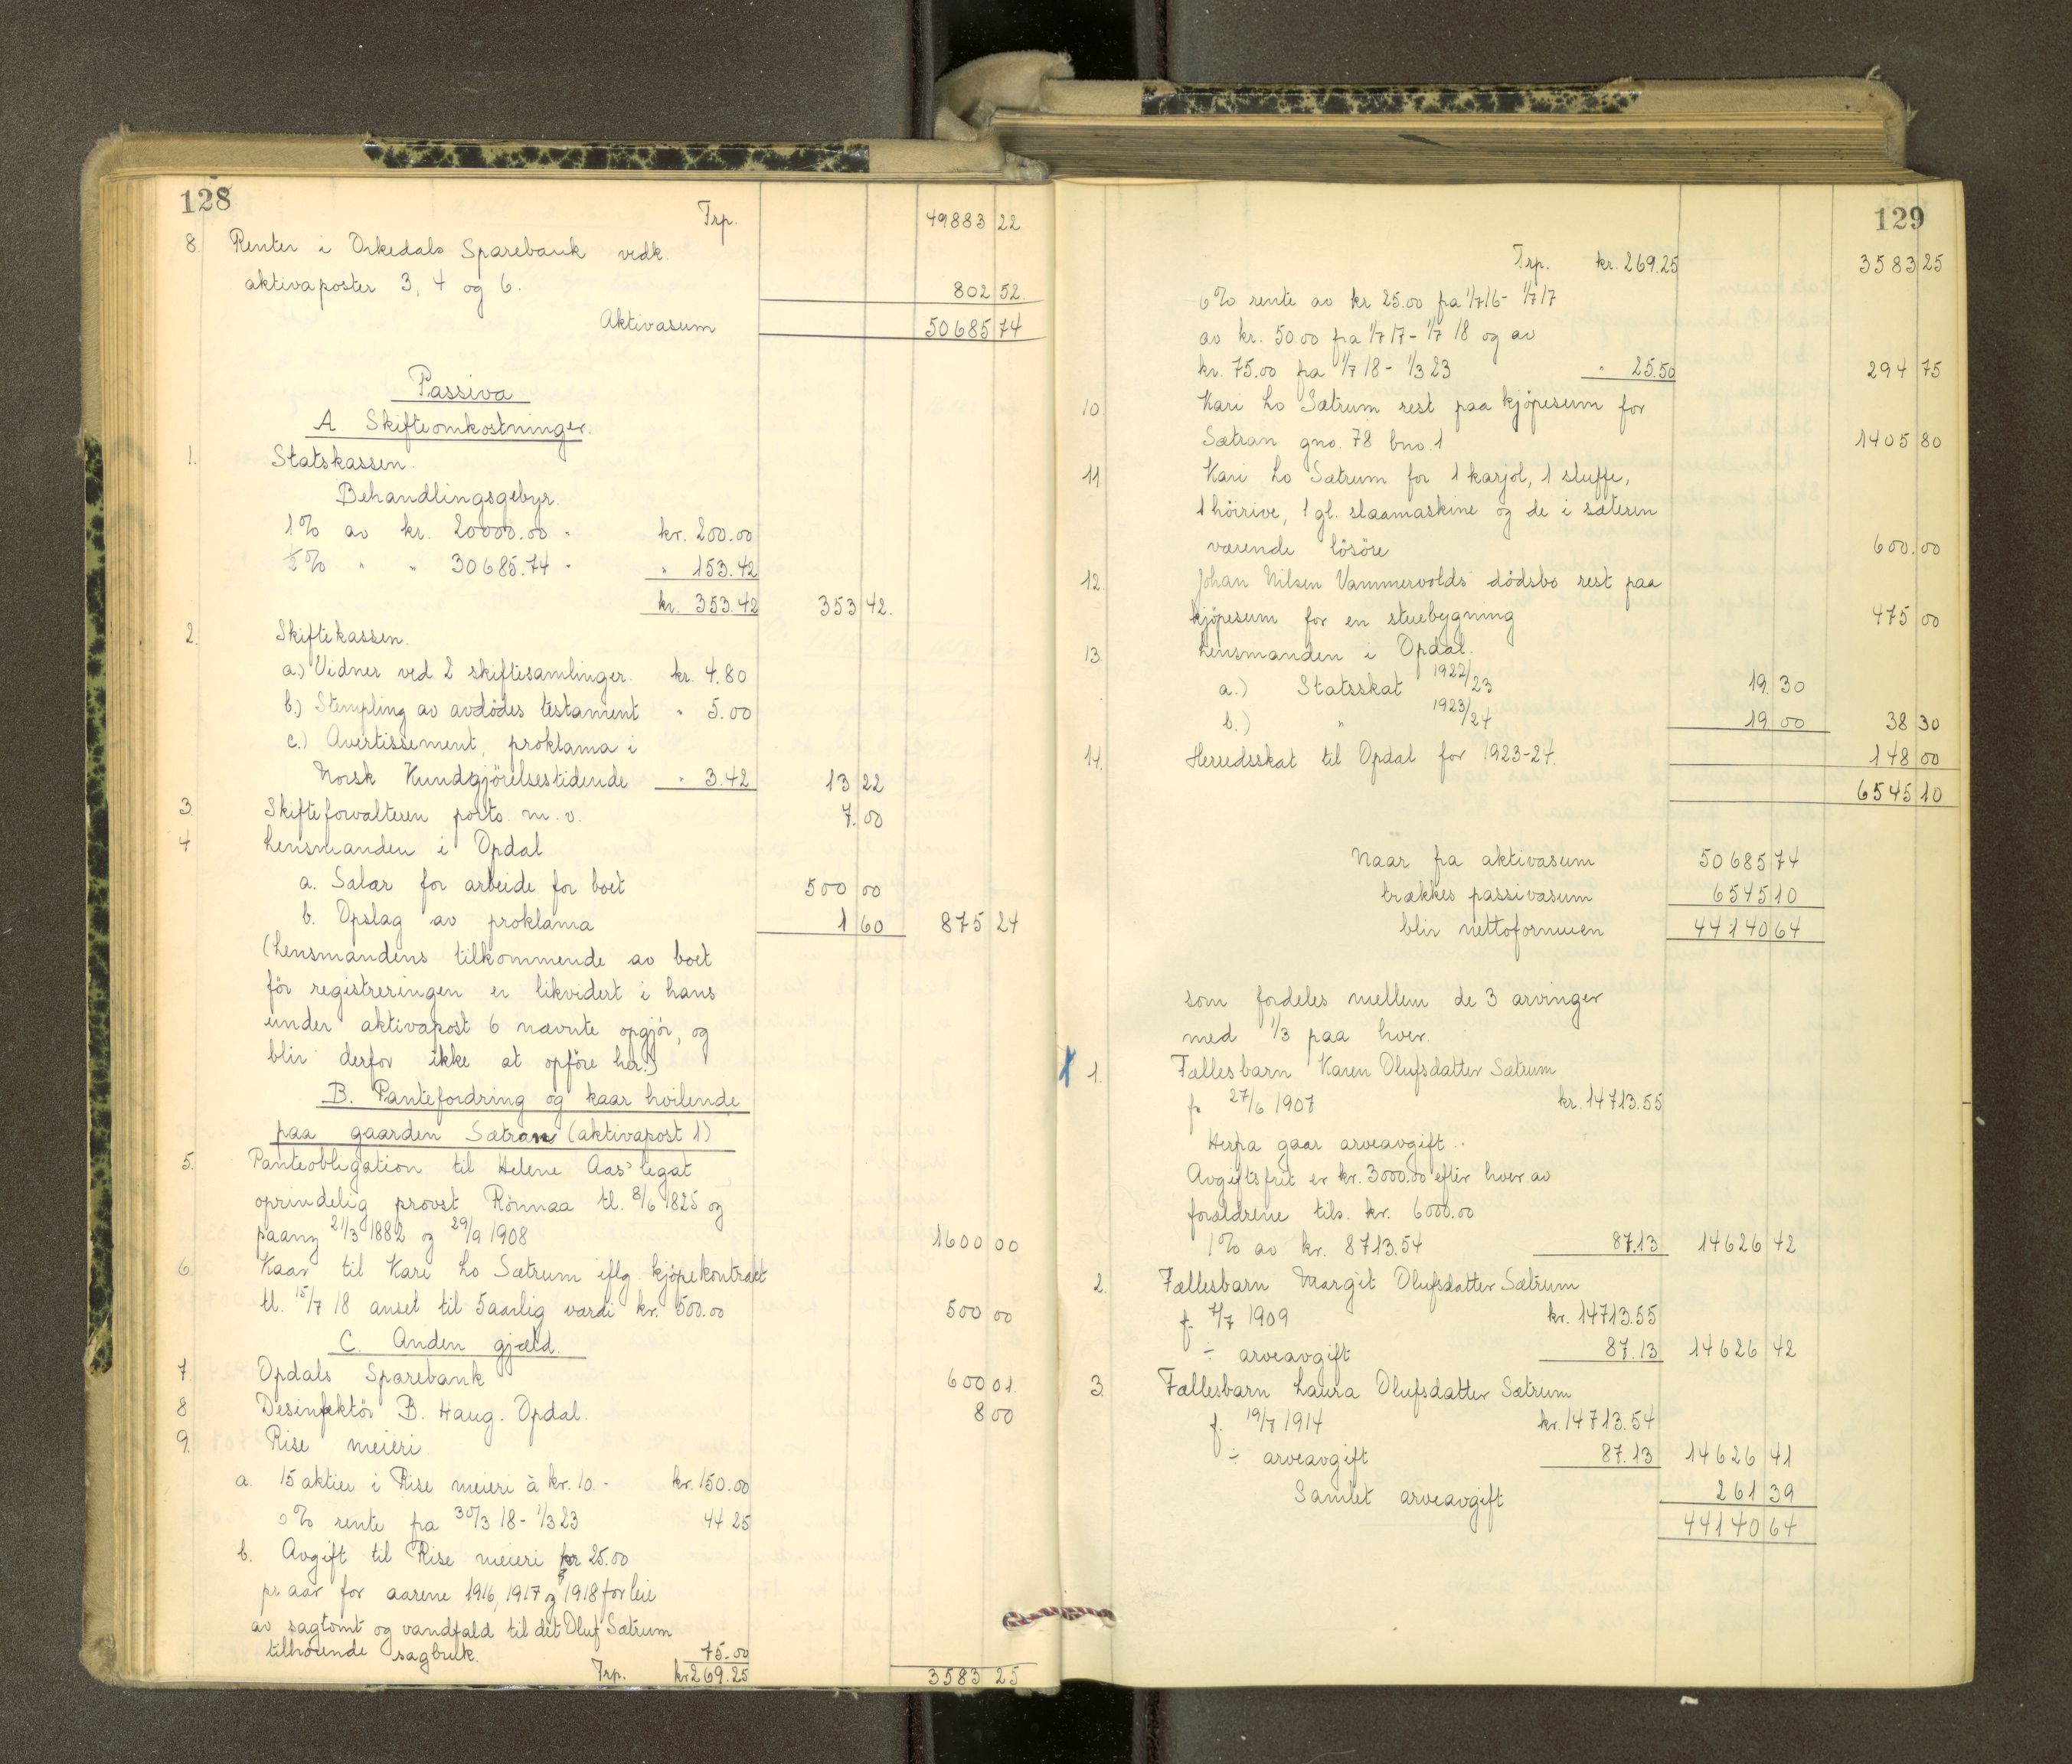 128
Trp. 49883 22
8. Renter i Orkedals Sparebank vedk.
aktivaposter 3, 4 og 6. 802 52.
Aktivasum 50685 74
Passiva
A Skifteomkostninger.
1. Statskassen.
Behandlingsgebyr.
1% av kr. 20000.00 - kr. 200.00
½% " " 30685.74 - " 153.42
kr. 353.42 353 42.
2. Skiftekassen.
a.) Vidner ved 2 skiftesamlinger. kr. 4.80
b.) Stempling av avdødes testament " 5.00
c.) Avertissement, proklama i
Norsk Kundgjörelsestidende " 3.42 13 22
3. Skifteforvalteren porto. m.v. 7.00
4 Lensmanden i Opdal
a. Salær for arbeide for boet 500 00
b. Opslag av proklama 1 60 875 24
(Lensmandens tilkommende av boet
för registreringen er likvidert i hans
under aktivapost 6 nævnte opgjör, og
blir derfor ikke at opföre her.)
B. Pantefordring og kaar hvilende
paa gaarden Sætran (aktivapost 1)
5. Panteobligation til Helene Aas' legat
oprindelig provst Rönnaa tl. 8/6 1825 og
paany 21/3 1882 og 29/9 1908 1600 00
6. Kaar til Kari Lo Sætrum iflg. kjöpekontrakt
tl. 15/7 18 anset til 5aarlig værdi kr. 500.00 500 00
C. Anden gjæld.
7. Opdals Sparebank 600 01.
8 Desinfektör B. Haug. Opdal. 8 00
9. Rise meieri
a. 15 aktier i Rise meieri à kr. 10.- kr. 150.00
% rente fra 30/3 18 - 1/3 23 44 25
b. Avgift til Rise meieri kr 25.00
pr aar for aarene 1916, 1917 og 1918 for leie
av sagtomt og vandfald til det Oluf Sætrum
tilhörende sagbruk. 75.00
Trp. kr 269.25 3583 25
129
Trp. kr. 269.25 3583 25
6% rente av kr 25.00 fra 1/7 16 - 1/7 17
av kr. 50.00 fra 1/7 17 - 1/7 18 og av
kr. 75.00 fra 1/7 18 - 1/3 23 " 25.50 294 75
10. Kari Lo Sætrum rest paa kjöpesum for
Sætran gno. 78 bno. 1 1405 80
11 Kari Lo Sætrum for 1 karjol, 1 sluffe,
1 höirive, 1 gl. slaamaskine og de i sæteren
værende lösöre 600.00
12. Johan Nilsen Vammervolds dödsbo rest paa
kjöpesum for en stuebygning 475 00
13. Lensmanden i Opdal.
a.) Statsskat 1922/23 19 30
b.) " 1923/24 19 00 38 30
14. Herredsskat til Opdal for 1923-24. 148 00
6545 10
Naar fra aktivasum 50685 74
trækkes passivasum 6545 10
blir nettoformuen 44140 64
som fordeles mellem de 3 arvinger
med 1/3 paa hver.
1. Fællesbarn Karen Olufsdatter Sætrum
f. 27/6 1907 kr. 14713.55
Herfra gaar arveavgift..
Avgiftsfrit er kr. 3000.00 efter hver av
forældrene tils. kr. 6000.00
1% av kr. 8713.54 87.13 14626 42
2. Fællesbarn Margit Olufsdatter Sætrum
f. 7/7 1909 kr. 14713.55
÷ arveavgift 87.13 14626 42
3. Fællesbarn Laura Olufsdatter Sætrum
f. 19/7 1914 kr. 14713.54
÷ arveavgift 87.13 14626 41
Samlet arveavgift 261 39
44140 64